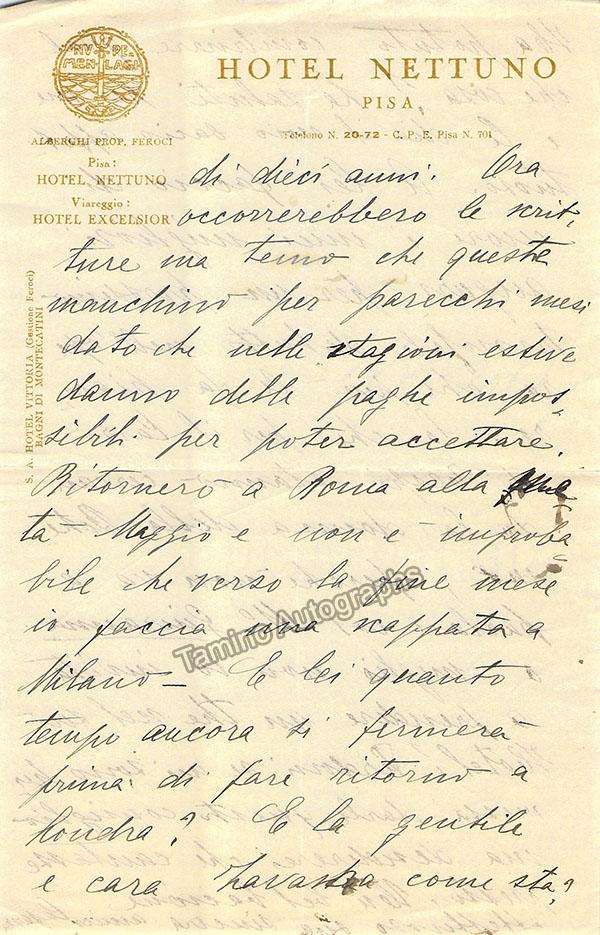 NVPE-
MENLAGI
HOTEL NETTUNO
PISA
Telefono N. 20-72 - C. P. E. Pisa N. 701
ALBERGHI PROP. FEROCI
Pisa:
HOTEL NETTUNO
Viareggio:
HOTEL EXCELSIOR
S. A. HOTEL VITTORIA (Gestione Feroci)
BAGNI DI MONTECATINI
di dieci anni. Ora
occorrerebbero le scrit-
ture ma temo che queste
manchino per parecchi mesi
dato che nelle stagioni estive
danno delle paghe impos-
sibili per poter accettare.
Ritornerò a Roma alla me
tà Maggio e non è improba
bile che verso la fine mese
io faccia una scappata a
Milano - E lei quanto
tempo ancora si fermerà
prima di fare ritorno a
Londra? E la gentile
e cara come sta?
Tamino Autographs